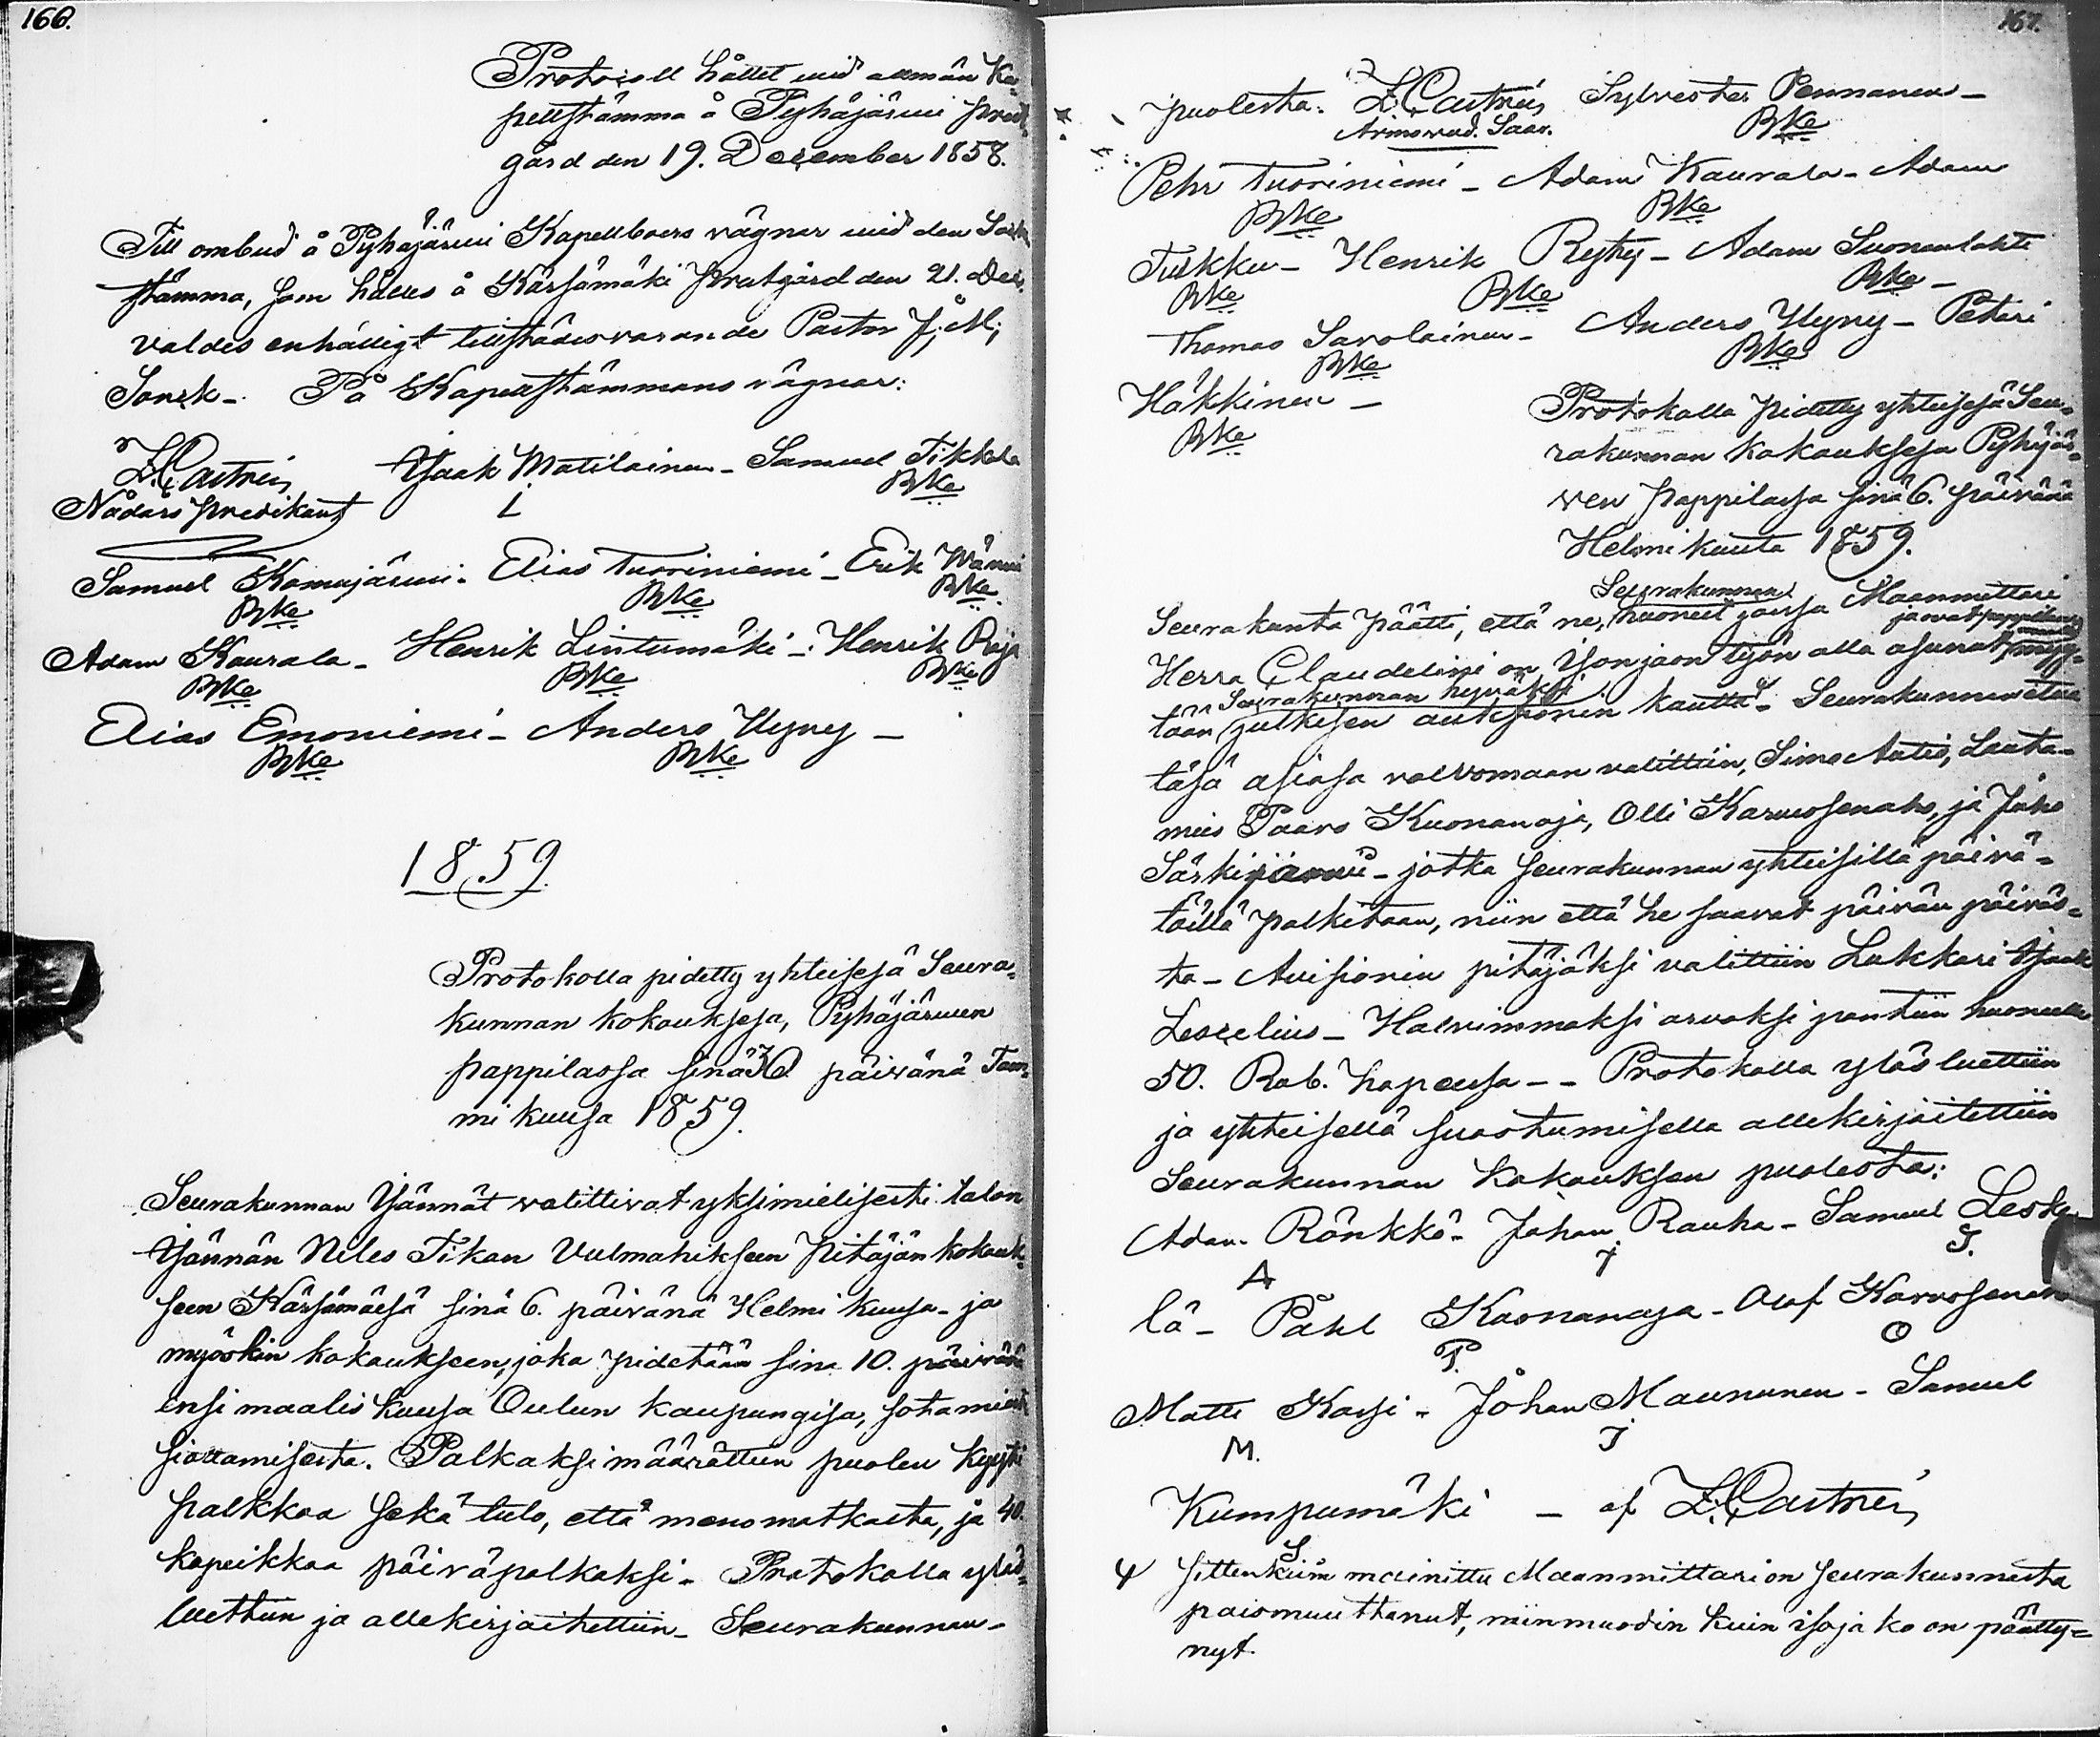 166.
Protocoll hållet uid allmän Ka-
pellstämma å Pyhäjärwi prest-
gård den 19. December 1858.
Till ombud å Pyhäjärwi Kapellboers vägnar uid den Sockn
stämma, som hålles å Kärsämäki prestgård den 21. Dec.
valdes enhälligt tillstädesvarande Pastor J. M.
Sonck - På Kapellstämmans vägnar:
Z. Castrén Isaak Matilainen - Samuel Tikkala
Nådårs predikant I BKe
Samuel Komujärwi - Elias Tuoriniemi - Erik Wänni
BKe BKe BKe
Adam Kaurala - Henrik Lintumäki - Henrik Raja
BKe BKe BKe
Elias Emoniemi - Anders Hyyry -
BKe BKe
1859
Protokolla pidetty yhteisesä Seura-
kunnan kokouksesa, Pyhäjärwen
pappilassa sinä 30 päivänä Tam-
mikuusa 1859.
Seurakunnan Isännät valittivat yksimielisesti talon
Isännän Niles Tikan Vulmahikseen Pitäjän kokouk-
seen Kärsämäesä sinä 6. päivänä Helmi kuusa - ja
myöskin kokoukseen, joka pidetään sinä 10. päivänä
ensi maalis kuusa Oulun kaupungisa, sotamiest
siottamisesta. Palkaksi määrättiin puolen kyyti
palkkaa sekä tulo, että menomatkasta, ja 40.
kopeikkaa päiväpalkaksi - Protokolla ylös-
luettiin ja allekirjoitettiin - Seurakunnan -
167.
puolesta: Z. Castrén Sylvester Pennanen -
Armovud. Saar. BKe
Pehr Tuoriniemi - Adam Kaurala - Adam
BKe BKe
Tukku - Henrik Ryhy - Adam Suonenlahti
BKe BKe BKe -
Thomas Savolainen - Anders Hyyry - Petteri
BKe BKe
Häkkinen -
BKe
Protokolla pidetty yhteisesä Seu-
rakunnan kokouksesa Pyhäjär-
ven pappilassa sinä 6. päivänä
Helmikuuta 1859.
Seurakunnan
Seurakunta päätti, että ne, huoneet joissa Maanmittari
ja ovat pappilan
Herra Claudelini on Ison jaon työn alla asunut myy-
Seurakunnan hyväksi
tään julkisen auksionin kautta - Seurakunnan etua
täsä asiasa valvomaan valittiin, Simo Autio, Lauta-
mies Paavo Kuonanoja, Olli Karvosenaho, ja Juho
Särkijärvi - jotka seurakunnan yhteisillä päivä-
töillä palkitaan, niin että he saavat päivän päiväs-
tä - Auksionin pitäjäksi valittiin Lukkari Isaak
Lescelius - Halvimmaksi arvoksi pantiin huoneelle
50. Rub. hopeusa - - Protokolla ylös luettiin
ja yhteisellä suostumisella allekirjoitettiin
Seurakunnan kokouksen puolesta:
Adam Rönkkö - Johan Rauha - Samuel Leske
A J S.
lä - Påhl Kuonanoja - Olof Karvosenaho
P. O
Matts Kossi - Johan Maununen - Samuel
M. J
Kumpumäki - af Z. Castrén
S
4 Sittenkuin mainittu Maanmittari on seurakunnasta
poismuuttanut, niinmuodin kuin isoja ko on päätty-
nyt.